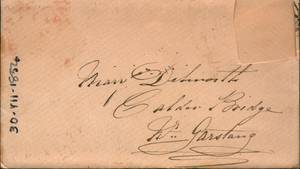 Miss Dilworth
Calder Bridge
Nr. Garstang
30-VII-1884